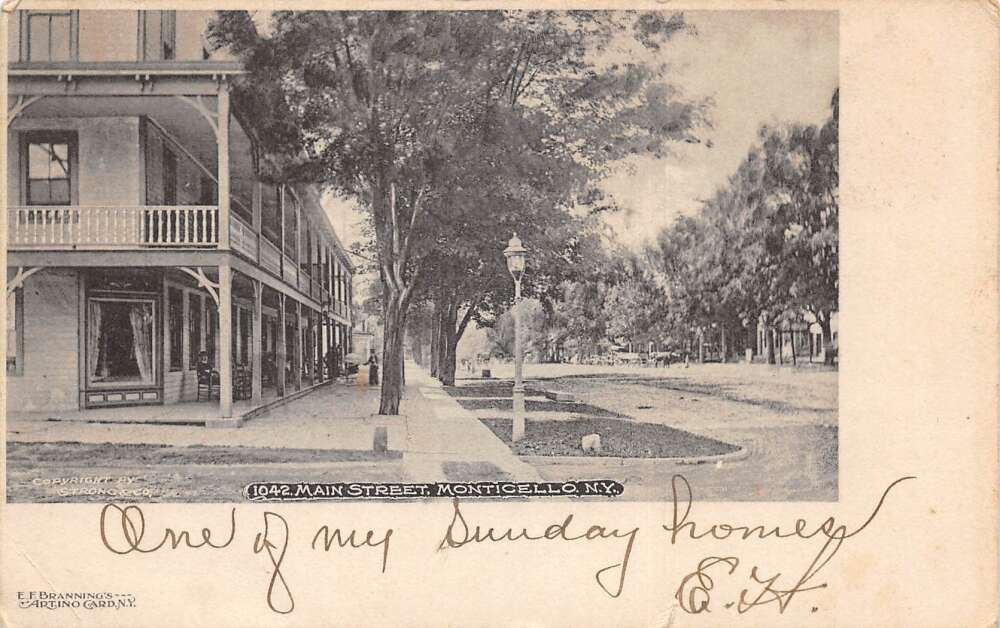 COPYRIGHT BY
STRONG & CO.
1042. MAIN STREET, MONTICELLO, N.Y.
One of my Sunday homes
E. H.
E.F. BRANNING'S
ARTINO CARD, N.Y.